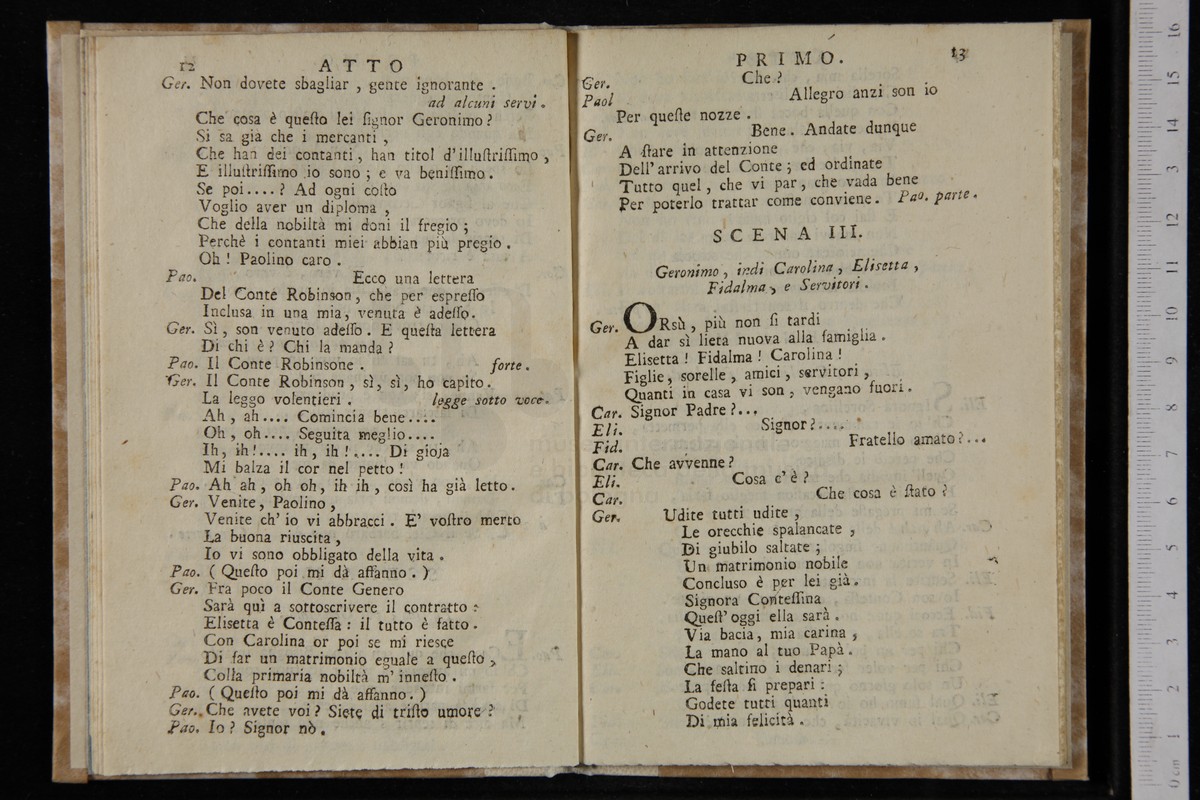 12 ATTO
Ger. Non dovete sbagliar , gente ignorante .
ad alcuni servi .
Che cosa è queſto lei ſignor Geronimo ?
Si sa già che i mercanti ,
Che han dei contanti , han titol d'illuſtriſſimo ,
E illuſtriſſimo io sono ; e va beniſſimo .
Se poi .... ? Ad ogni coſto
Voglio aver un diploma ,
Che della nobiltà mi doni il fregio ;
Perchè i contanti miei abbian più pregio .
Oh ! Paolino caro .
Pao. Ecco una lettera
Del Conte Robinson , che per espreſſo
Inclusa in una mia , venuta è adeſſo .
Ger. Sì , son venuto adeſſo . E queſta lettera
Di chi è ? Chi la manda ?
Pao. Il Conte Robinsone . forte .
Ger. Il Conte Robinson , sì , sì , ho capito .
La leggo volentieri . legge sotto voce .
Ah , ah .... Comincia bene ....
Oh , oh .... Seguita meglio ....
Ih , ih ! .... ih , ih ! .... Di gioja
Mi balza il cor nel petto !
Pao. Ah ah , oh oh , ih ih , così ha già letto .
Ger. Venite , Paolino ,
Venite ch' io vi abbracci . E' voſtro merto
La buona riuscita ,
Io vi sono obbligato della vita .
Pao. ( Queſto poi mi dà affanno . )
Ger. Fra poco il Conte Genero
Sarà quì a sottoscrivere il contratto :
Elisetta è Conteſſa : il tutto è fatto .
Con Carolina or poi se mi riesce
Di far un matrimonio eguale a queſto ,
Colla primaria nobiltà m' inneſto .
Pao. ( Queſto poi mi dà affanno . )
Ger. Che avete voi ? Siete di triſto umore ?
Pao. Io ? Signor nò .
PRIMO. 13
Ger. Che ?
Paol Allegro anzi son io
Per queſte nozze .
Ger. Bene . Andate dunque
A ſtare in attenzione
Dell' arrivo del Conte ; ed ordinate
Tutto quel , che vi par , che vada bene
Per poterlo trattar come conviene . Pao. parte .
SCENA III.
Geronimo , indi Carolina , Elisetta ,
Fidalma , e Servitori .
Ger. ORsù , più non ſi tardi
A dar sì lieta nuova alla famiglia .
Elisetta ! Fidalma ! Carolina !
Figlie , sorelle , amici , servitori ,
Quanti in casa vi son , vengano fuori .
Car. Signor Padre ? ...
Eli. Signor ? ....
Fid. Fratello amato ? ...
Car. Che avvenne ?
Eli. Cosa c' è ?
Car. Che cosa è ſtato ?
Ger. Udite tutti udite ,
Le orecchie spalancate ,
Di giubilo saltate ;
Un matrimonio nobile
Concluso è per lei già .
Signora Conteſſina
Queſt' oggi ella sarà .
Via bacia , mia carina ,
La mano al tuo Papà .
Che saltino i denari ;
La feſta ſi prepari :
Godete tutti quanti
Di mia felicità .
0 cm 1 2 3 4 5 6 7 8 9 10 11 12 13 14 15 16